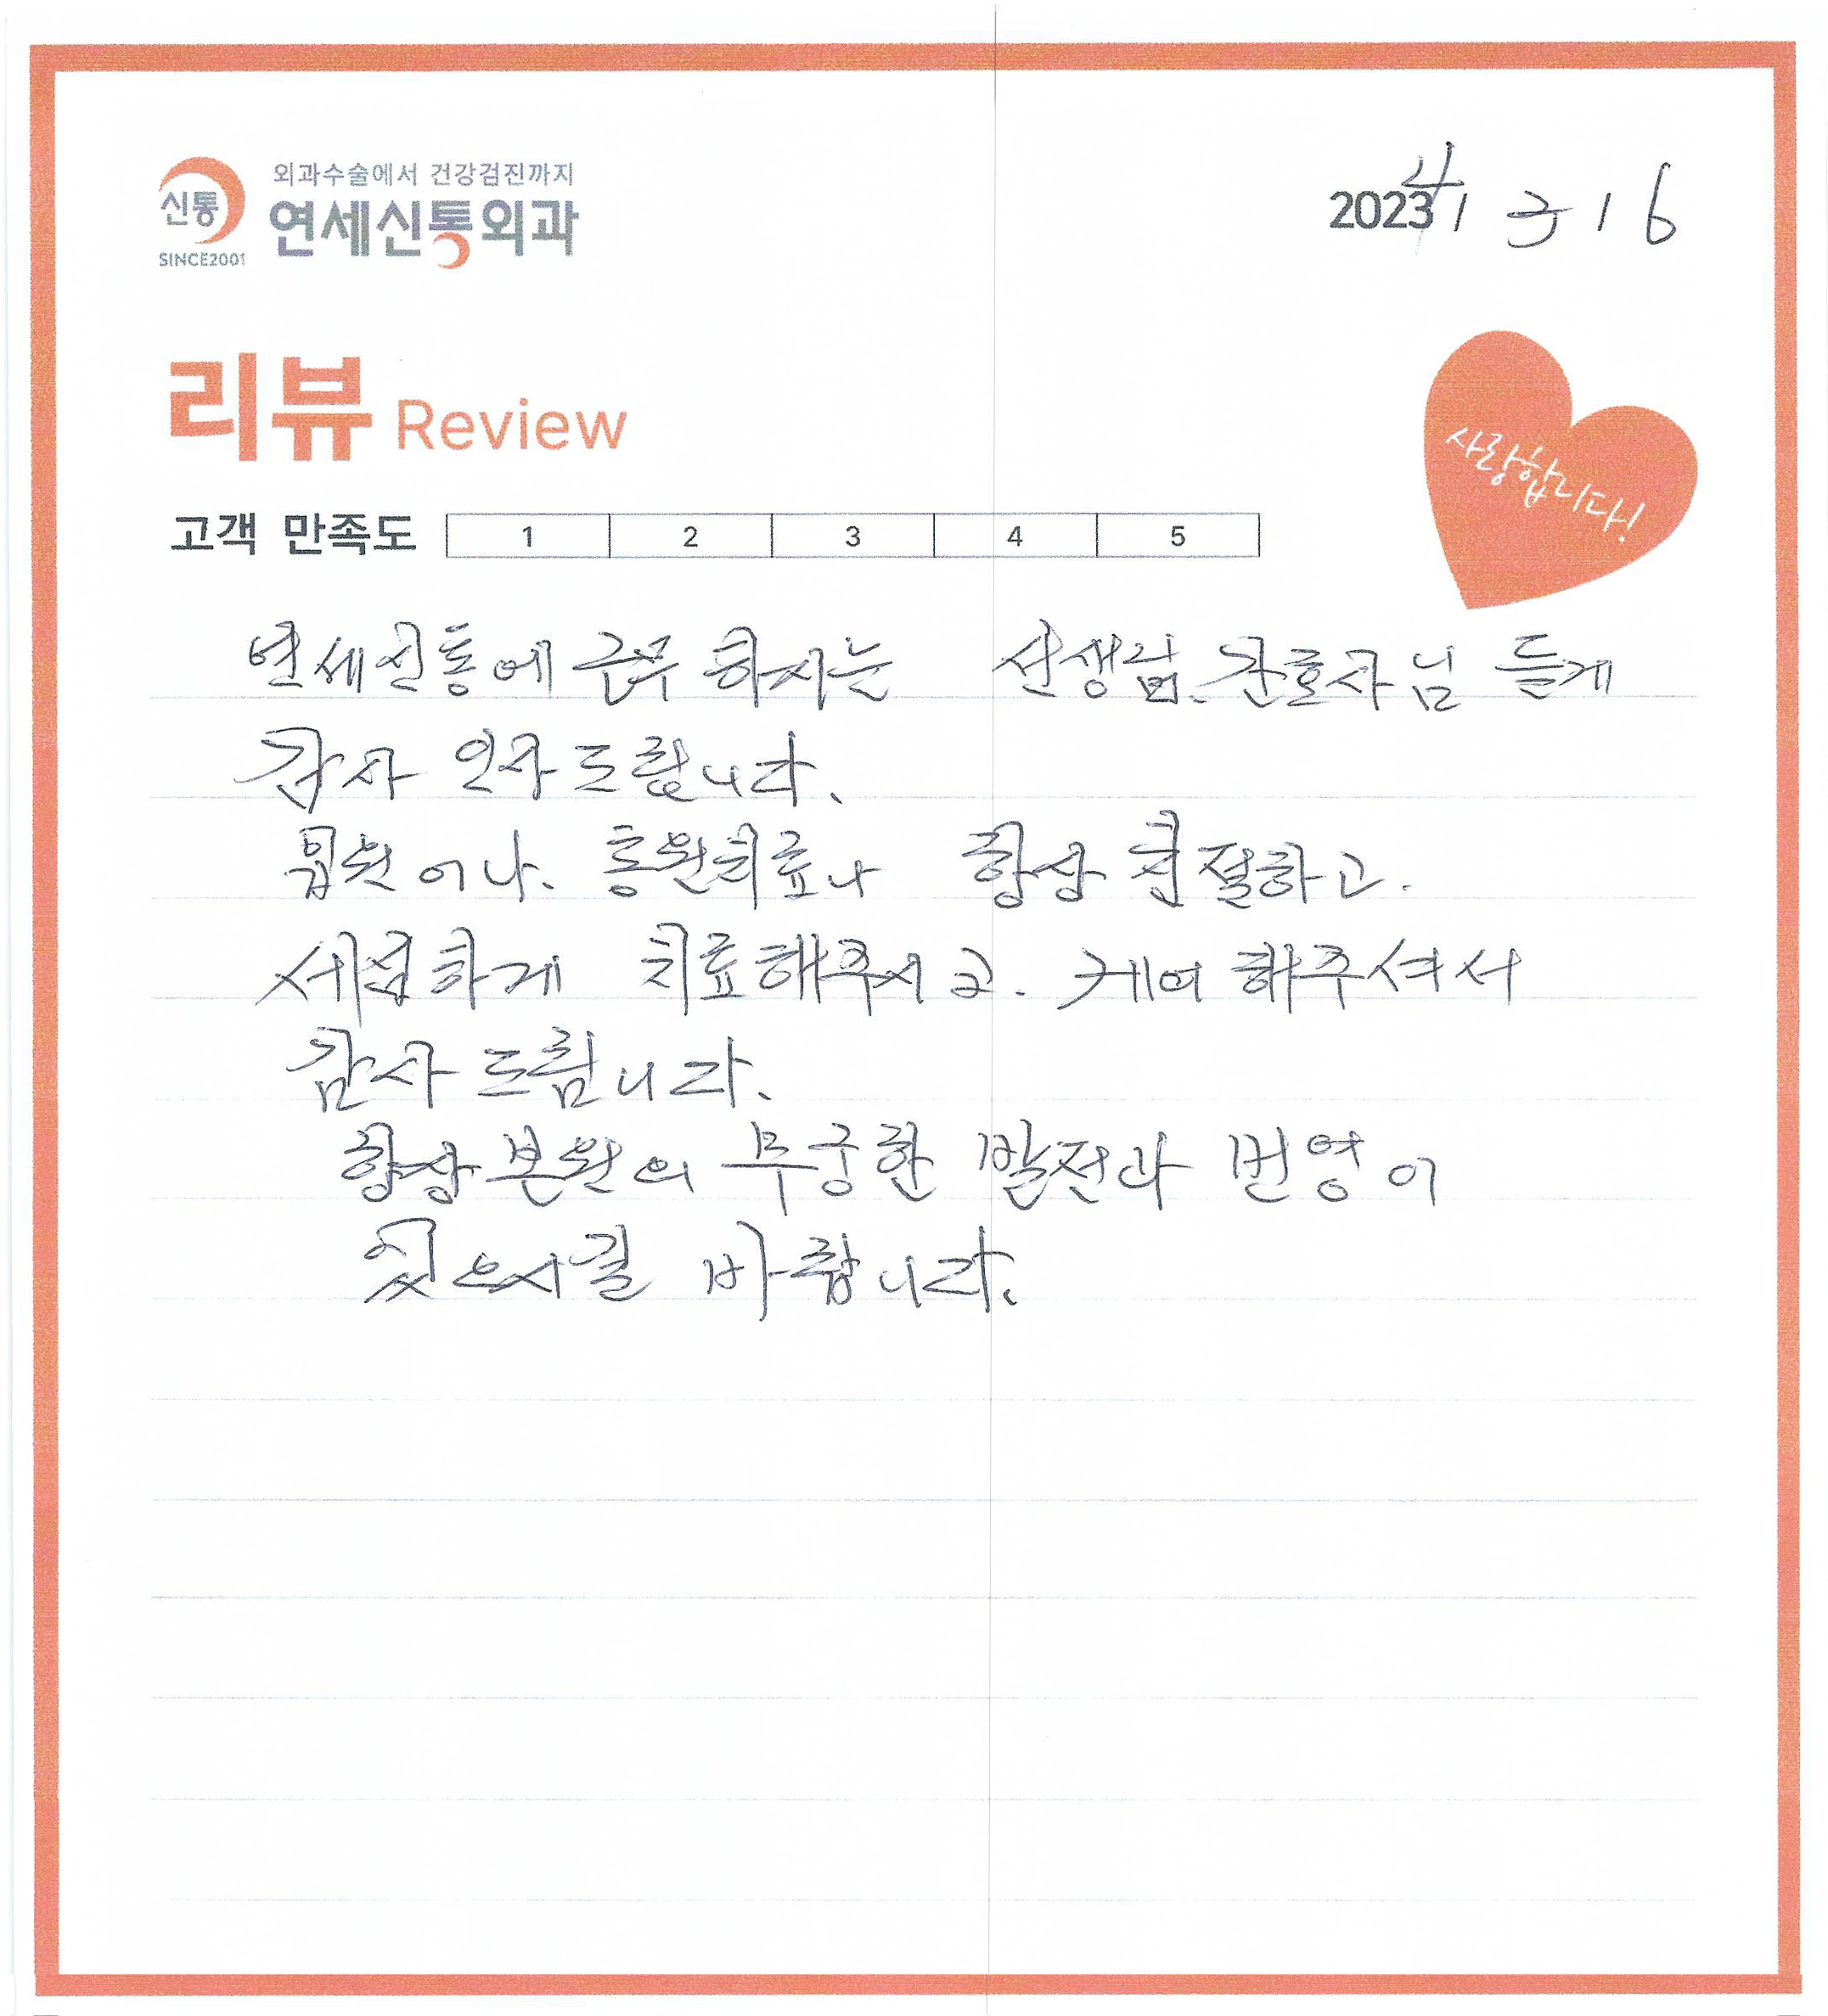 신통
SINCE2001
외과수술에서 건강검진까지
연세신통외과
2023 4 / 3 / 16
리뷰 Review
사랑합니다!
고객 만족도 1 2 3 4 5
연세신통에 근무 하시는 선생님. 간호사님 들게
감사 인사 드립니다.
입원이나. 통원치료나 항상 친절하고.
세심하게 치료해주시고. 케어 해주셔서
감사 드립니다.
항상 본원의 무궁한 발전과 번영이
있으시길 바랍니다.